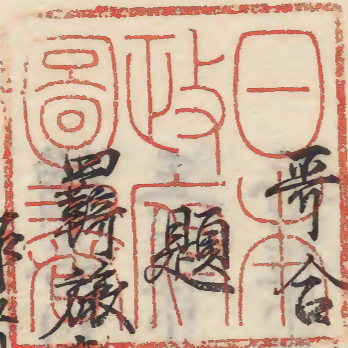 日本
政府
圖書
哥合
題
羇旅